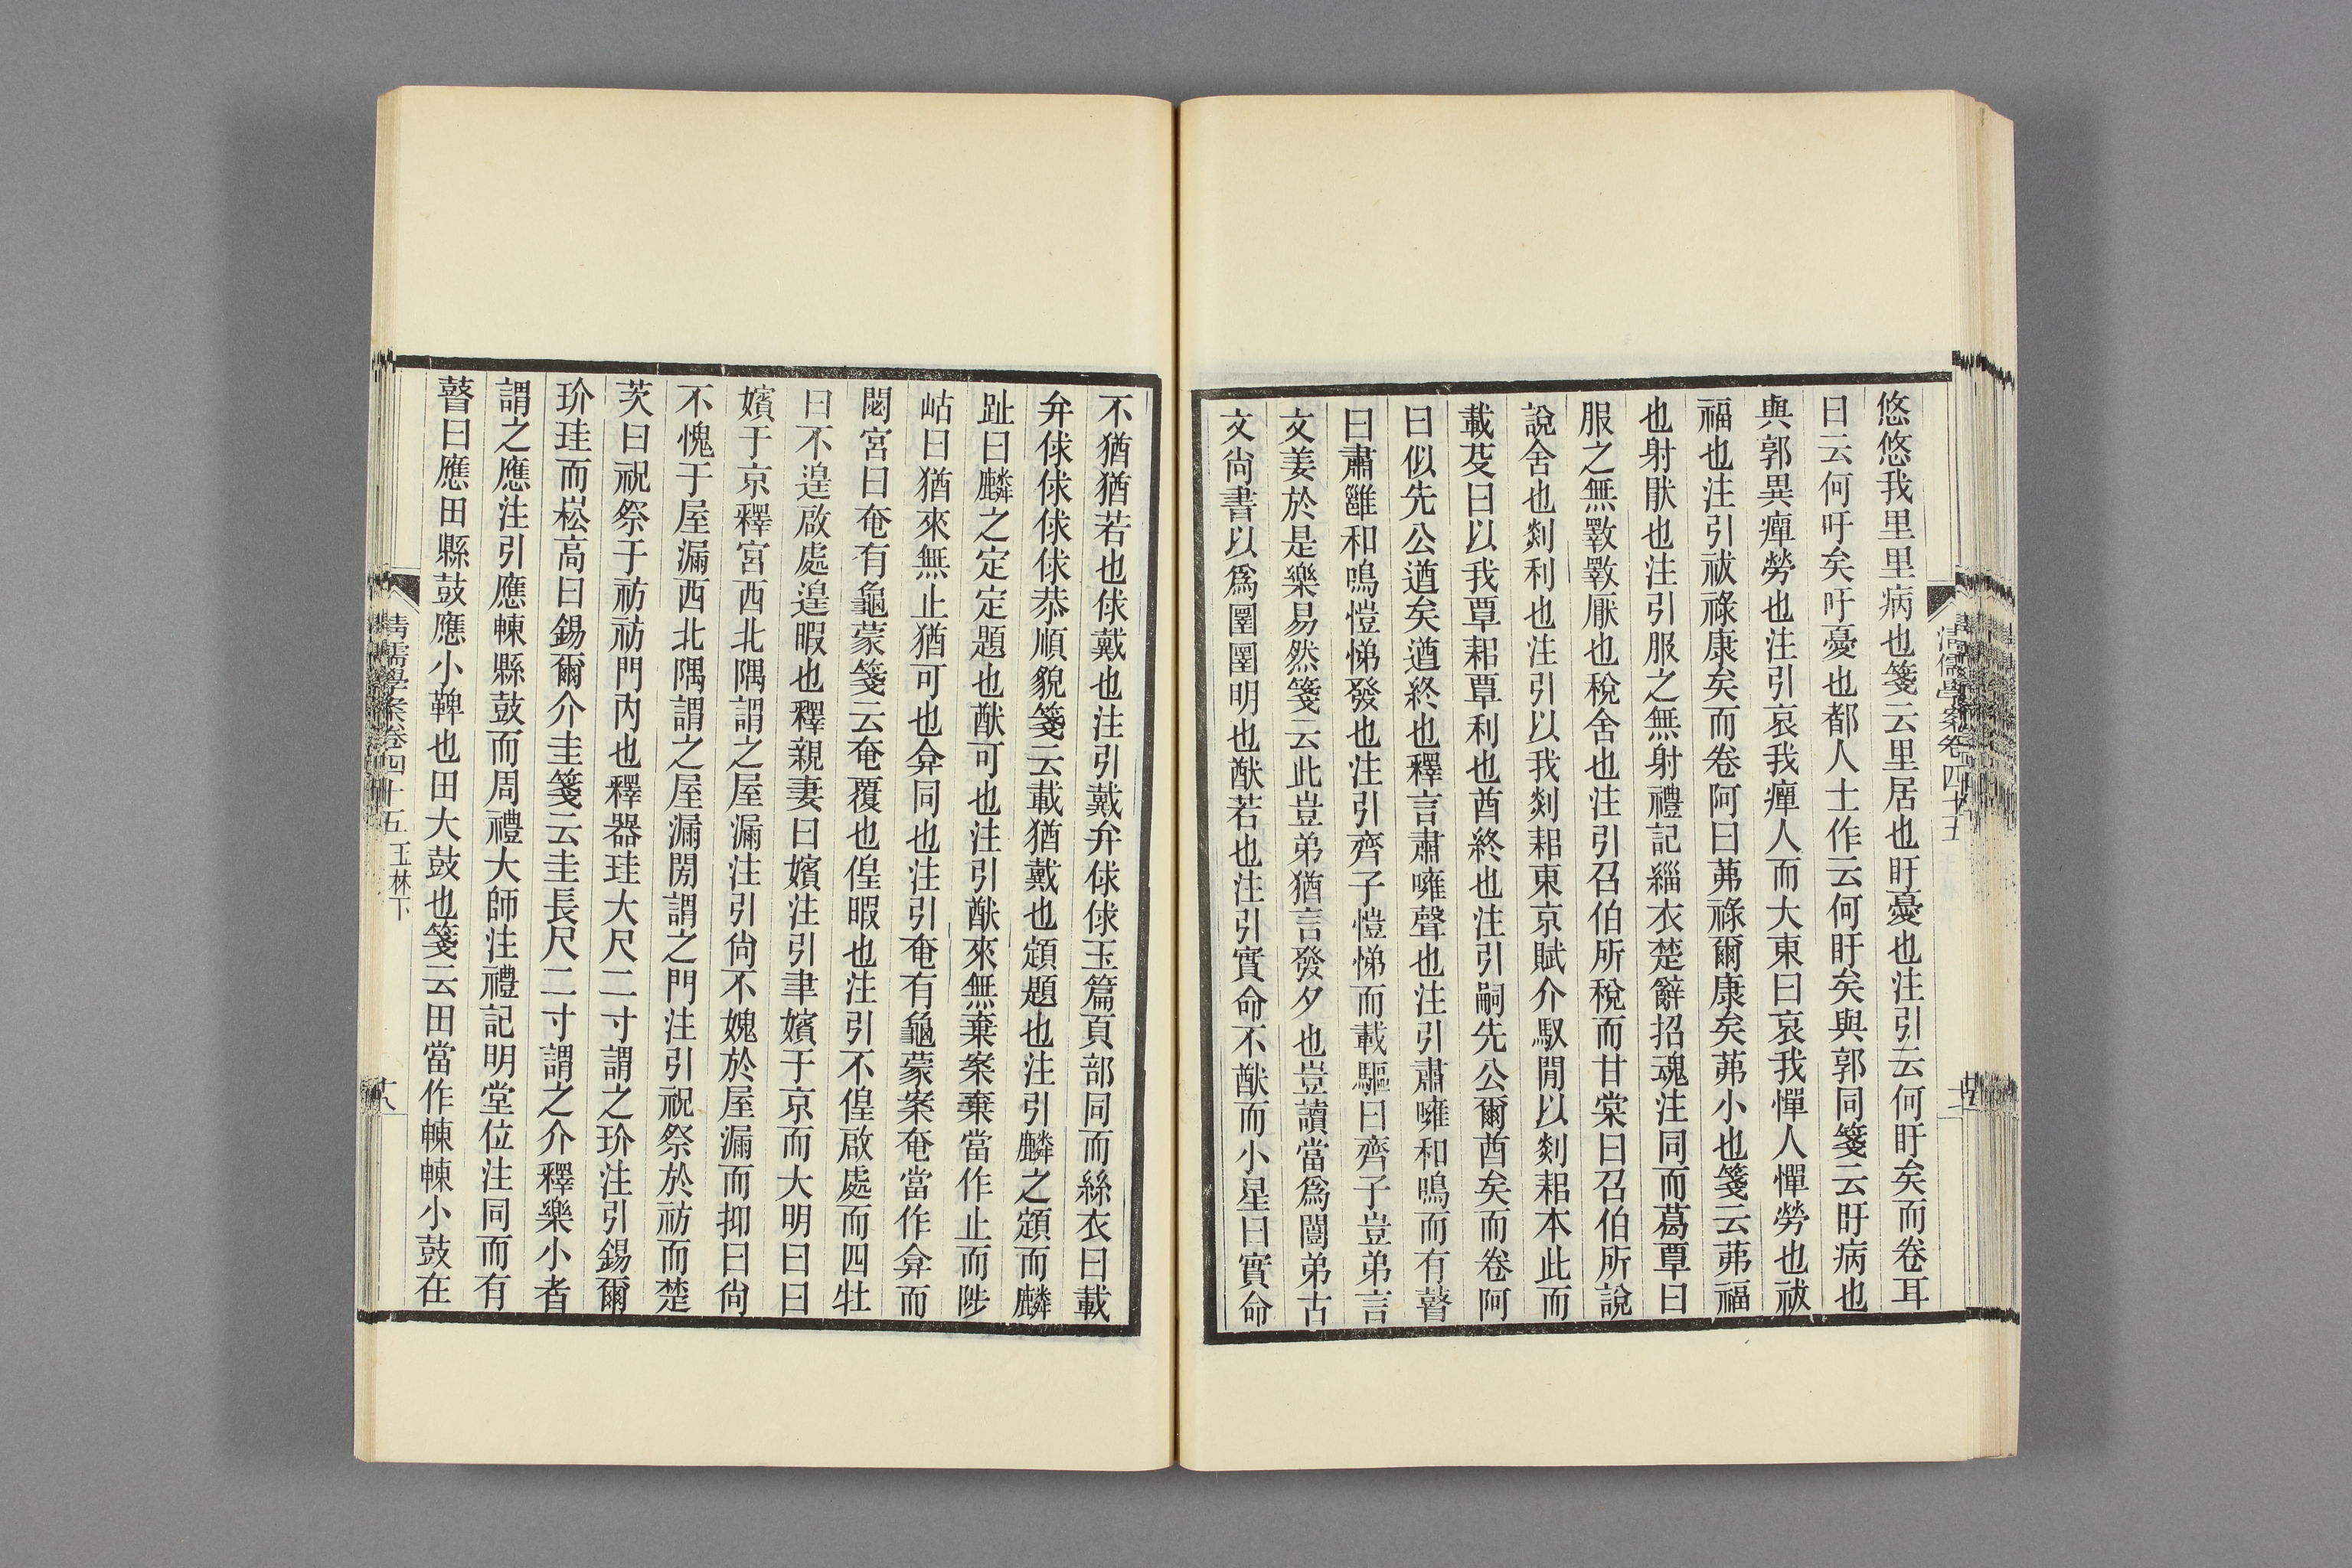 悠悠我里里病也箋云里居也盱憂也注引云何盱矣而卷耳
曰云何吁矣吁憂也都人士作云何盱矣與郭同箋云盱病也
與郭異癉勞也注引哀我癉人而大東曰哀我憚人憚勞也祓
福也注引祓祿康矣而卷阿曰茀祿爾康矣茀小也箋云茀福
也射猒也注引服之無射禮記緇衣楚辭招魂注同而葛覃曰
服之無斁斁厭也稅舍也注引召伯所稅而甘棠曰召伯所說
說舍也剡利也注引以我剡耜東京賦介馭閒以剡耜本此而
載芟曰以我覃耜覃利也酋終也注引嗣先公爾酋矣而卷阿
曰似先公遒矣遒終也釋言肅噰聲也注引肅噰和鳴而有瞽
曰肅雝和鳴愷悌發也注引齊子愷悌而載驅曰齊子豈弟言
文姜於是樂易然箋云此豈弟猶言發夕也豈讀當爲闓弟古
文尚書以爲圛圛明也猷若也注引實命不猷而小星曰實命
不猶猶若也俅戴也注引戴弁俅俅玉篇頁部同而絲衣曰載
弁俅俅俅俅恭順貌箋云載猶戴也顁題也注引麟之顁而麟
趾曰麟之定定題也猷可也注引猷來無棄案棄當作止而陟
岵曰猶來無止猶可也弇同也注引奄有龜蒙案奄當作弇而
閟宮曰奄有龜蒙箋云奄覆也偟暇也注引不偟啟處而四牡
曰不遑啟處遑暇也釋親妻曰嬪注引聿嬪于京而大明曰曰
嬪于京釋宮西北隅謂之屋漏注引尚不媿於屋漏而抑曰尚
不愧于屋漏西北隅謂之屋漏閍謂之門注引祝祭於祊而楚
茨曰祝祭于祊祊門內也釋器珪大尺二寸謂之玠注引錫爾
玠珪而崧高曰錫爾介圭箋云圭長尺二寸謂之介釋樂小者
謂之應注引應朄縣鼓而周禮大師注禮記明堂位注同而有
瞽曰應田縣鼓應小鞞也田大鼓也箋云田當作朄朄小鼓在
清儒學案卷四十五 玉林下
十八
清儒學案卷四十五